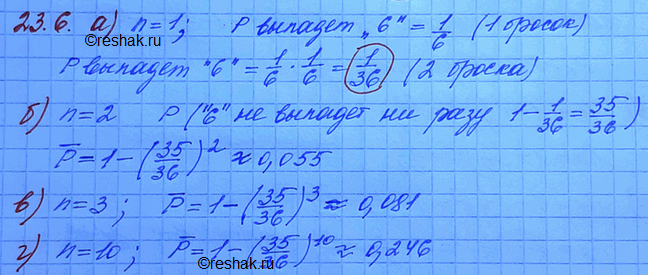 23.6. а) n=1; P выпадет "6" = 1/6 (1 бросок)
©reshak.ru
P выпадет "6" = 1/6 · 1/6 = 1/36 (2 броска)
б) n=2 P ("6" не выпадет ни разу 1 - 1/36 = 35/36)
P̅ = 1 - (35/36)^2 ≈ 0,055
в) n=3; P̅ = 1 - (35/36)^3 ≈ 0,081
г) n=10; P̅ = 1 - (35/36)^10 ≈ 0,246
©reshak.ru